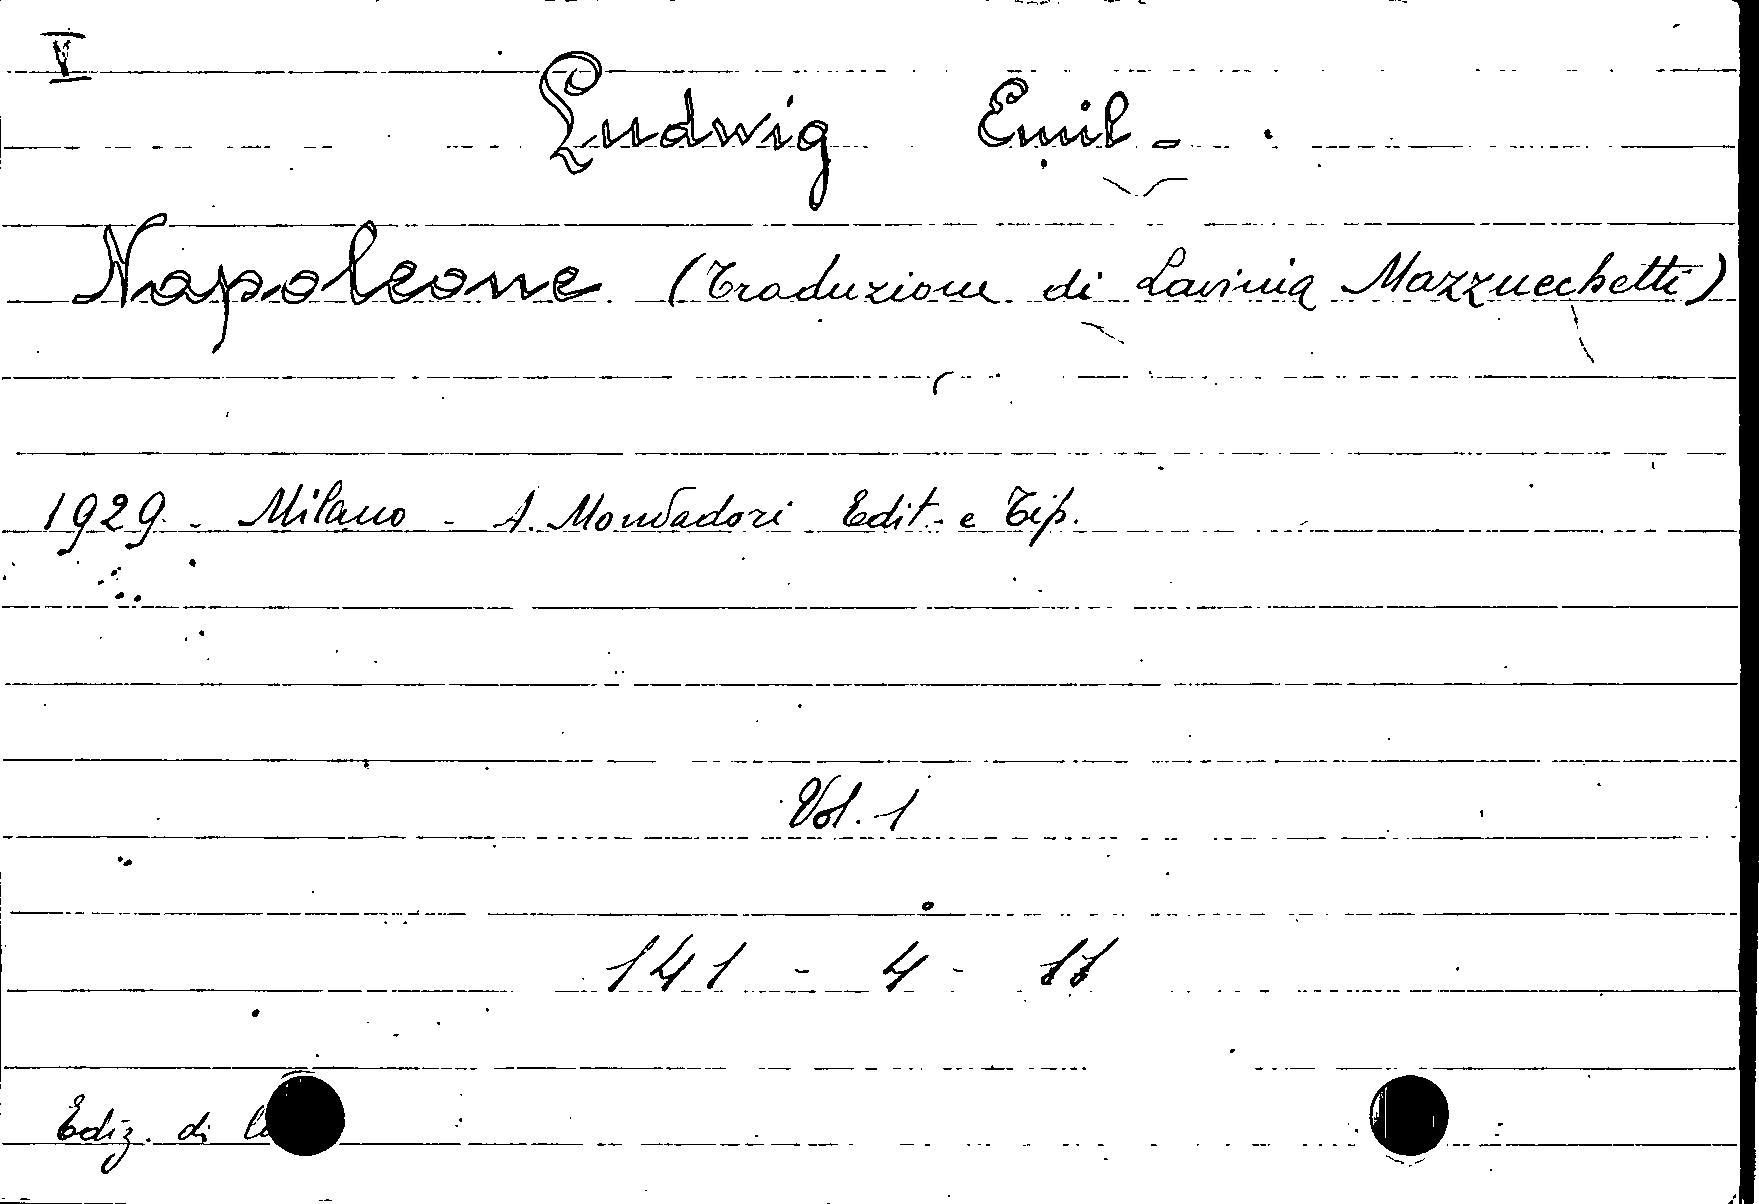 V
Ludwig Emil -
Napoleone (Traduzione di Lavinia Mazzucchetti)
1929. - Milano - A. Mondadori Edit. e Tip.
Vol. 1
141 - 4 - 11
Ediz. di